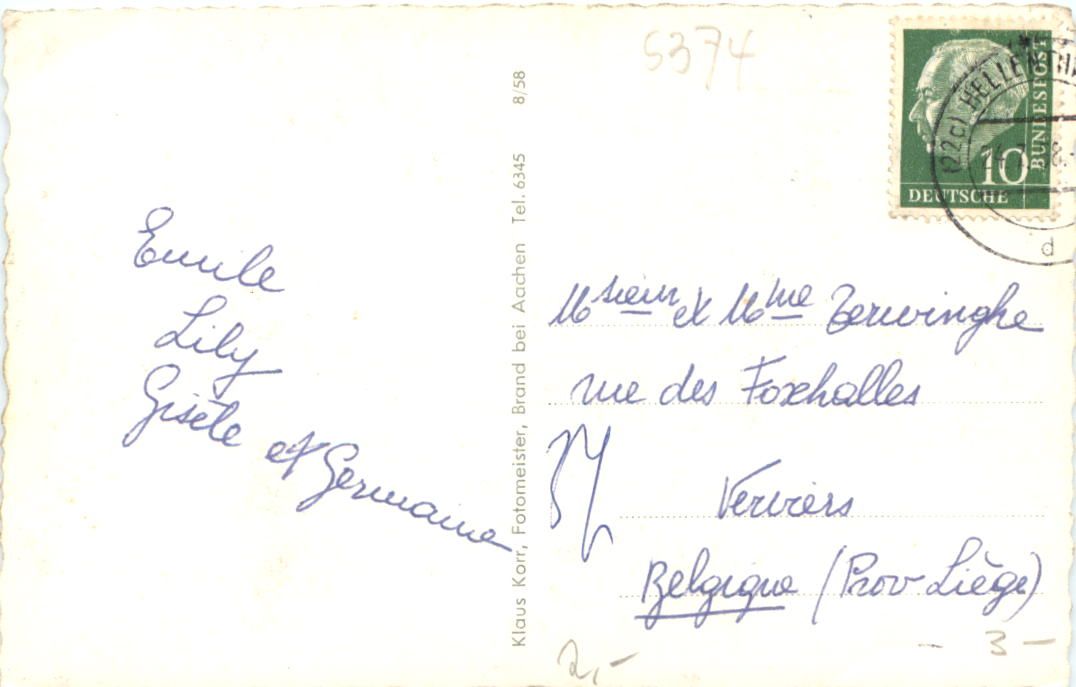 5374
DEUTSCHE
BUNDESPOST
10
(22c) HELLENTHA
d
Klaus Korr, Fotomeister, Brand bei Aachen Tel. 6345 8/58
Emile
Lily
Gisèle et Germaine
Msieur et Mme Terwinghe
rue des Foxhalles
57
Verviers
Belgique (Prov Liège)
2,-
- 3 -